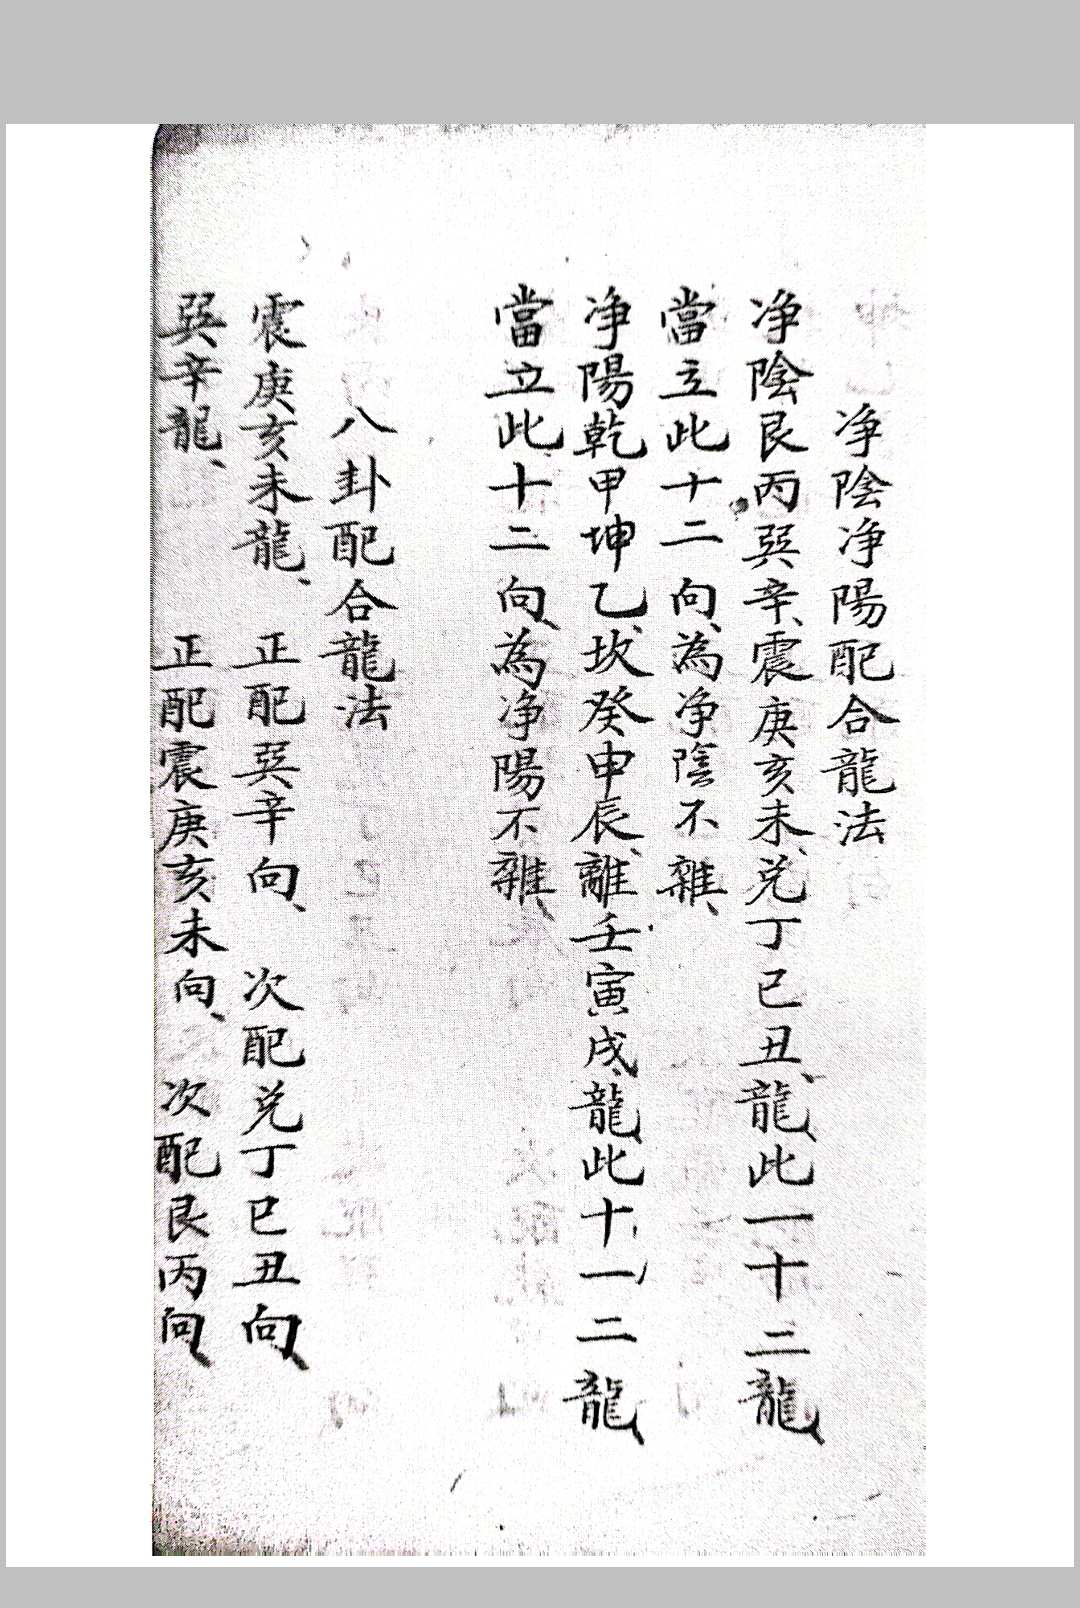 净陰净陽配合龍法
净陰艮丙巽辛、震庚亥未、兑丁巳丑、龍此一十二龍、
當立此十二向、為净陰不雜、
净陽乾甲坤乙、坎癸申辰、離壬寅戌、龍、此十一二龍、
當立此十二向、為净陽不雜、
八卦配合龍法
震庚亥未龍、 正配巽辛向、 次配兑丁巳丑向、
巽辛龍、 正配震庚亥未向、 次配艮丙向、